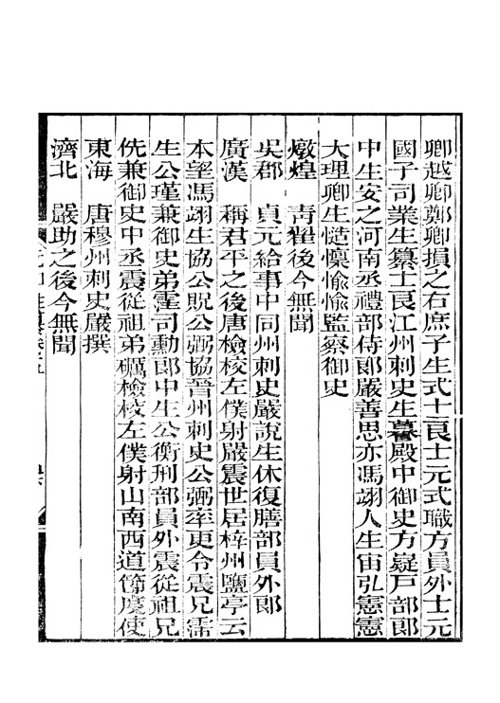 卿越卿鄭卿損之右庶子生式十良士元式職方員外士元
國子司業生纂士良江州刺史生暮殿中御史方嶷戸部郎
中生安之河南丞禮部侍郎嚴善思亦馮翊人生宙弘憲憲
大理卿生愻懍愉愉監察御史
燉煌　青翟後今無聞
吳郡　貞元給事中同州刺史嚴說生休復膳部員外郎
廣漢　稱君平之後唐檢校左僕射嚴震世居梓州鹽亭云
本望馮翊生協公貺公弼協晉州刺史公弼率更令震兄霶
生公瑾兼御史弟霔司勳郎中生公衡刑部員外震從祖兄
侁兼御史中丞震從祖弟礪檢校左僕射山南西道節度使
東海　唐穆州刺史嚴撰
濟北　嚴助之後今無聞